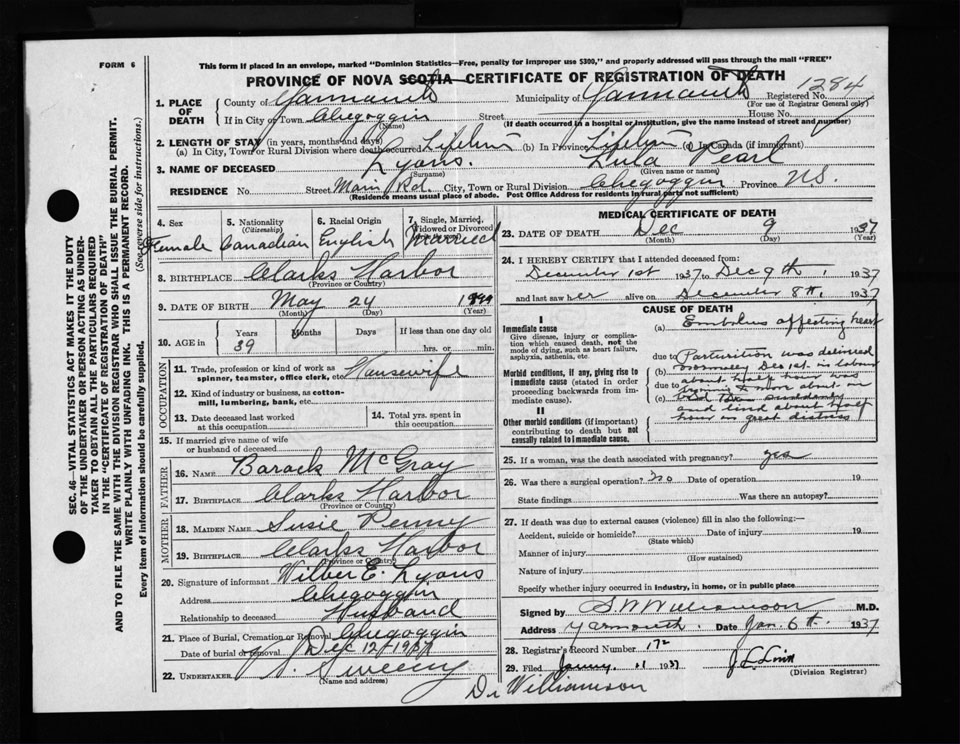 FORM 6
This form if placed in an envelope, marked "Dominion Statistics—Free, penalty for improper use $300," and properly addressed will pass through the mail "FREE"
PROVINCE OF NOVA SCOTIA—CERTIFICATE OF REGISTRATION OF DEATH
1284
1. PLACE OF DEATH
County of Yarmouth Municipality of Yarmouth Registered No.
(For use of Registrar General only)
If in City or Town Chegoggin Street House No.
(Name) (If death occurred in a hospital or institution, give the name instead of street and number)
2. LENGTH OF STAY (in years, months and days)
(a) In City, Town or Rural Division where death occurred Lifetime (b) In Province Lifetime (c) In Canada (if immigrant)
3. NAME OF DECEASED Lyons. Lula Pearl
(Surname) (Given name or names)
RESIDENCE No. Street Main Rd. City, Town or Rural Division Chegoggin Province N.S.
(Residence means usual place of abode. Post Office Address for residents in rural parts not sufficient)
4. Sex Female
5. Nationality (Citizenship) Canadian
6. Racial Origin English
7. Single, Married, Widowed or Divorced Married
8. BIRTHPLACE Clarks Harbor
(Province or Country)
9. DATE OF BIRTH May 24
(Month) (Day) (Year)
10. AGE in Years Months Days If less than one day old
39 hrs. or min.
OCCUPATION
11. Trade, profession or kind of work as spinner, teamster, office clerk, etc. Housewife
12. Kind of industry or business, as cotton-mill, lumbering, bank, etc.
13. Date deceased last worked at this occupation
14. Total yrs. spent in this occupation
15. If married give name of wife or husband of deceased
FATHER
16. NAME Barack McGray
17. BIRTHPLACE Clarks Harbor
(Province or Country)
MOTHER
18. MAIDEN NAME Susie Penny
19. BIRTHPLACE Clarks Harbor
(Province or Country)
20. Signature of informant Wilber E. Lyons
Address Chegoggin
Relationship to deceased Husband
21. Place of Burial, Cremation or Removal Chegoggin
Date of burial or removal Dec 12 1937
22. UNDERTAKER Sweeny
(Name and address)
MEDICAL CERTIFICATE OF DEATH
23. DATE OF DEATH Dec 9 1937
(Month) (Day) (Year)
24. I HEREBY CERTIFY that I attended deceased from:
December 1st 1937 to Dec 9th, 1937
and last saw her alive on December 8th, 1937
CAUSE OF DEATH
I
Immediate cause
Give disease, injury or complication which caused death, not the mode of dying, such as heart failure, asphyxia, asthenia, etc.
(a) Embolus affecting heart
Morbid conditions, if any, giving rise to immediate cause (stated in order proceeding backwards from immediate cause).
due to Parturition was delivered
(b) normally Dec 1st. in labour
due to about half hour was
(c)
II
Other morbid conditions (if important) contributing to death but not causally related to immediate cause.
and died about half
hour in great distress
25. If a woman, was the death associated with pregnancy? yes
26. Was there a surgical operation? no Date of operation 19
State findings Was there an autopsy?
27. If death was due to external causes (violence) fill in also the following:—
Accident, suicide or homicide? Date of injury 19
(State which)
Manner of injury
(How sustained)
Nature of injury
Specify whether injury occurred in industry, in home, or in public place
Signed by S. W. Williamson M.D.
Address Yarmouth. Date Jan. 6th. 1937
28. Registrar's Record Number 172
29. Filed 11 1937
(Division Registrar)
Dr Williamson
SEC. 46—VITAL STATISTICS ACT MAKES IT THE DUTY
OF THE UNDERTAKER OR PERSON ACTING AS UNDER-
TAKER TO OBTAIN ALL THE PARTICULARS REQUIRED
IN THE "CERTIFICATE OF REGISTRATION OF DEATH"
AND TO FILE THE SAME WITH THE DIVISION REGISTRAR WHO SHALL ISSUE THE BURIAL PERMIT.
WRITE PLAINLY WITH UNFADING INK. THIS IS A PERMANENT RECORD.
Every item of information should be carefully supplied. (See reverse side for instructions.)